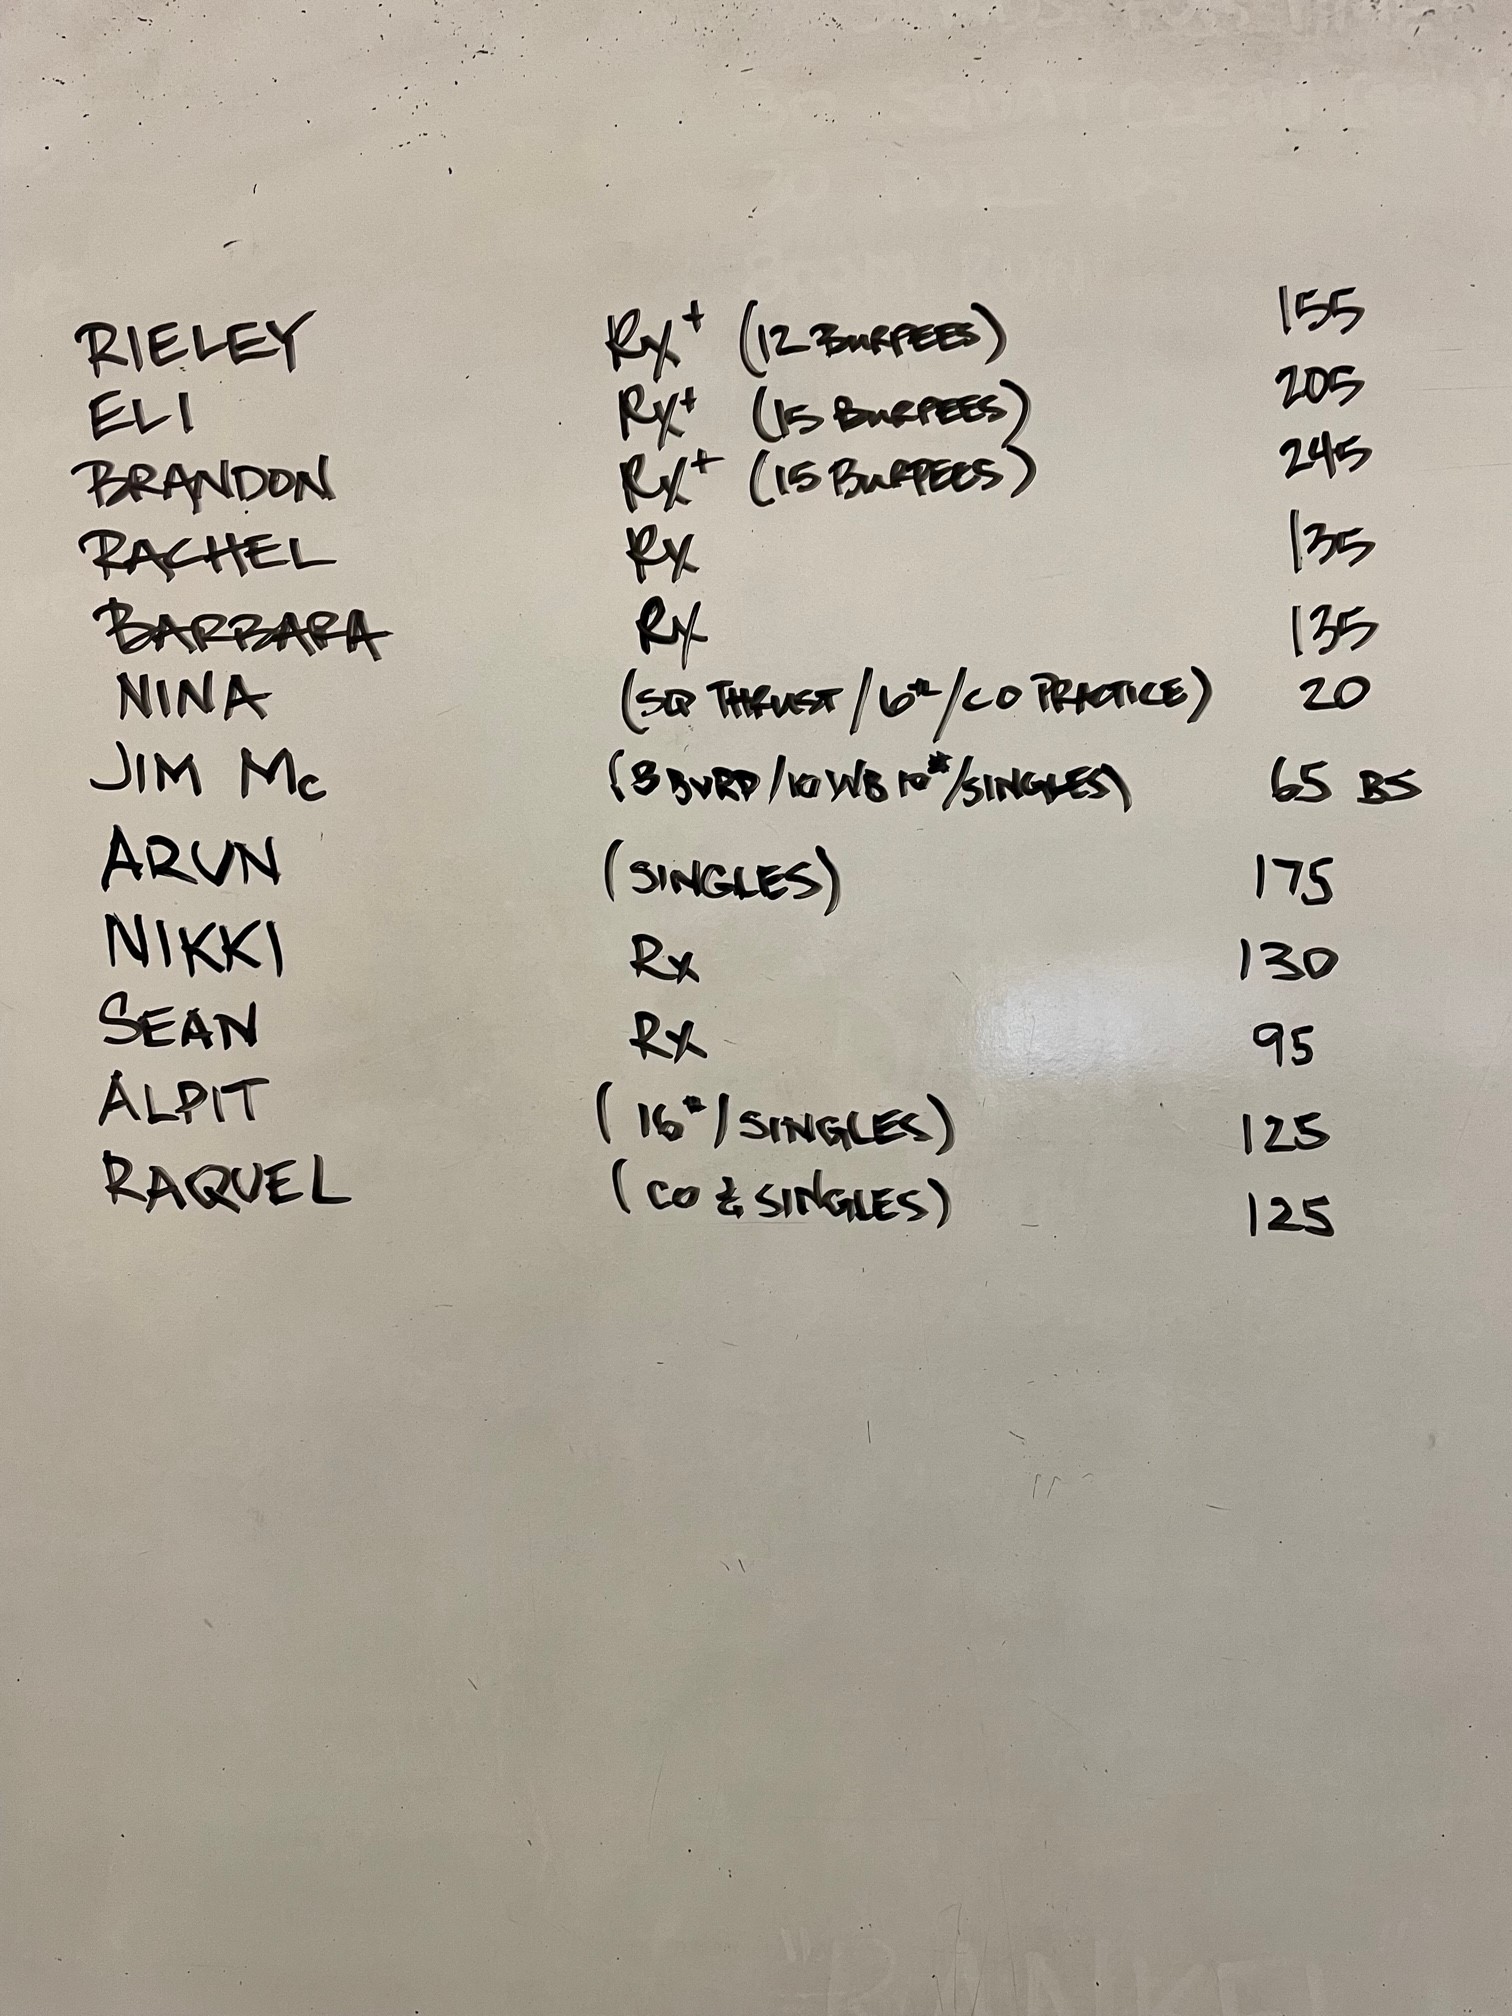 RIELEY Rx+ (12 BURPEES) 155
ELI Rx+ (15 BURPEES) 205
BRANDON Rx+ (15 BURPEES) 245
RACHEL Rx 135
BARBARA Rx 135
NINA (SQ THRUST / 6# / CO PRACTICE) 20
JIM Mc (3 BURP / 10 WB 10# / SINGLES) 65 BS
ARUN (SINGLES) 175
NIKKI Rx 130
SEAN Rx 95
ALPIT (16# / SINGLES) 125
RAQUEL (CO & SINGLES) 125